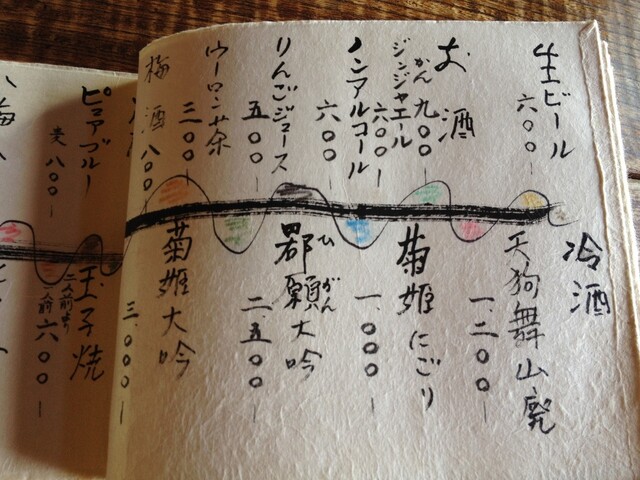 生ビール
六〇〇ー
お酒
かん 九〇〇ー
ジンジャエール
六〇〇ー
ノンアルコール
六〇〇ー
りんごジュース
五〇〇ー
ウーロン茶
三〇〇ー
梅酒
八〇〇ー
冷酒
天狗舞山廃
一、二〇〇ー
菊姫にごり
一、〇〇〇ー
ひがん
大吟
二、五〇〇ー
菊姫大吟
三、〇〇〇ー
ピュアブルー
麦 八〇〇ー
玉子焼
二人前より
一人前 六〇〇ー